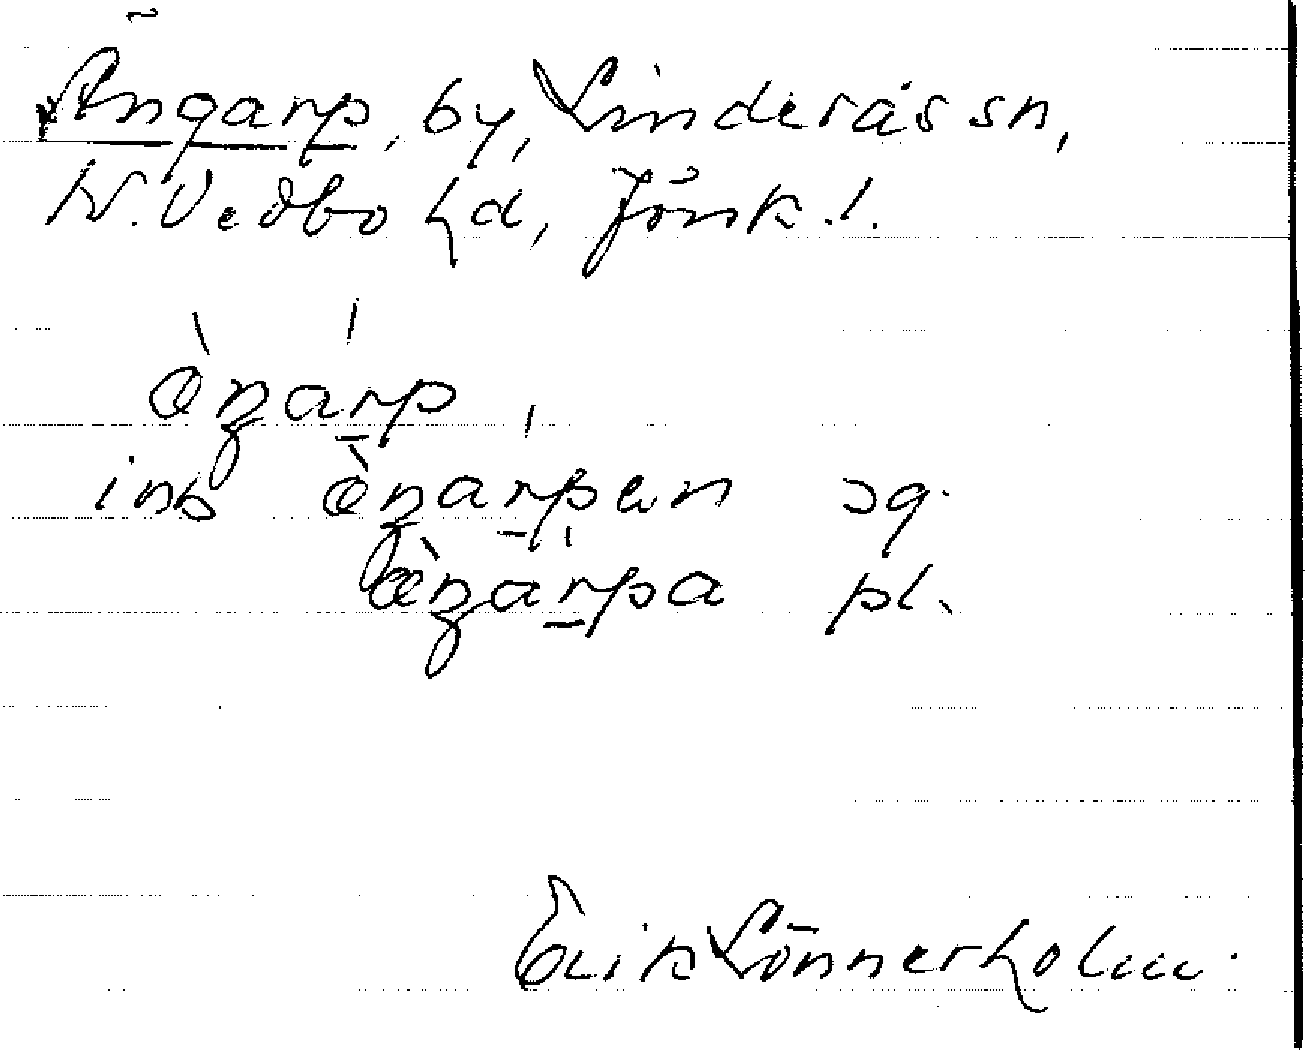 Ängarp, by, Linderås sn,
N. Vedbo hd, Jönk. l.
æ̀ŋár̲p,
inb æ̀ŋár̲pan sg.
æ̀ŋár̲pa pl.
Erik Lönnerholm.